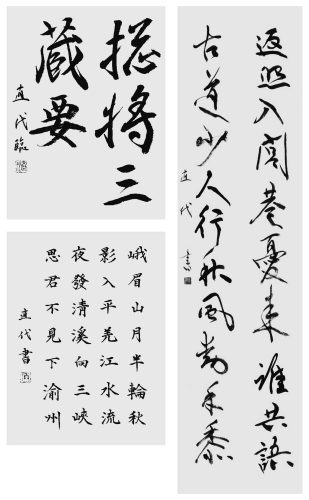 揔将三
藏要
直代臨
返照入閭巷憂来誰共語
古道少人行秋風動禾黍
直代書
峨眉山月半輪秋
影入平羌江水流
夜發清溪向三峽
思君不見下渝州
直代書